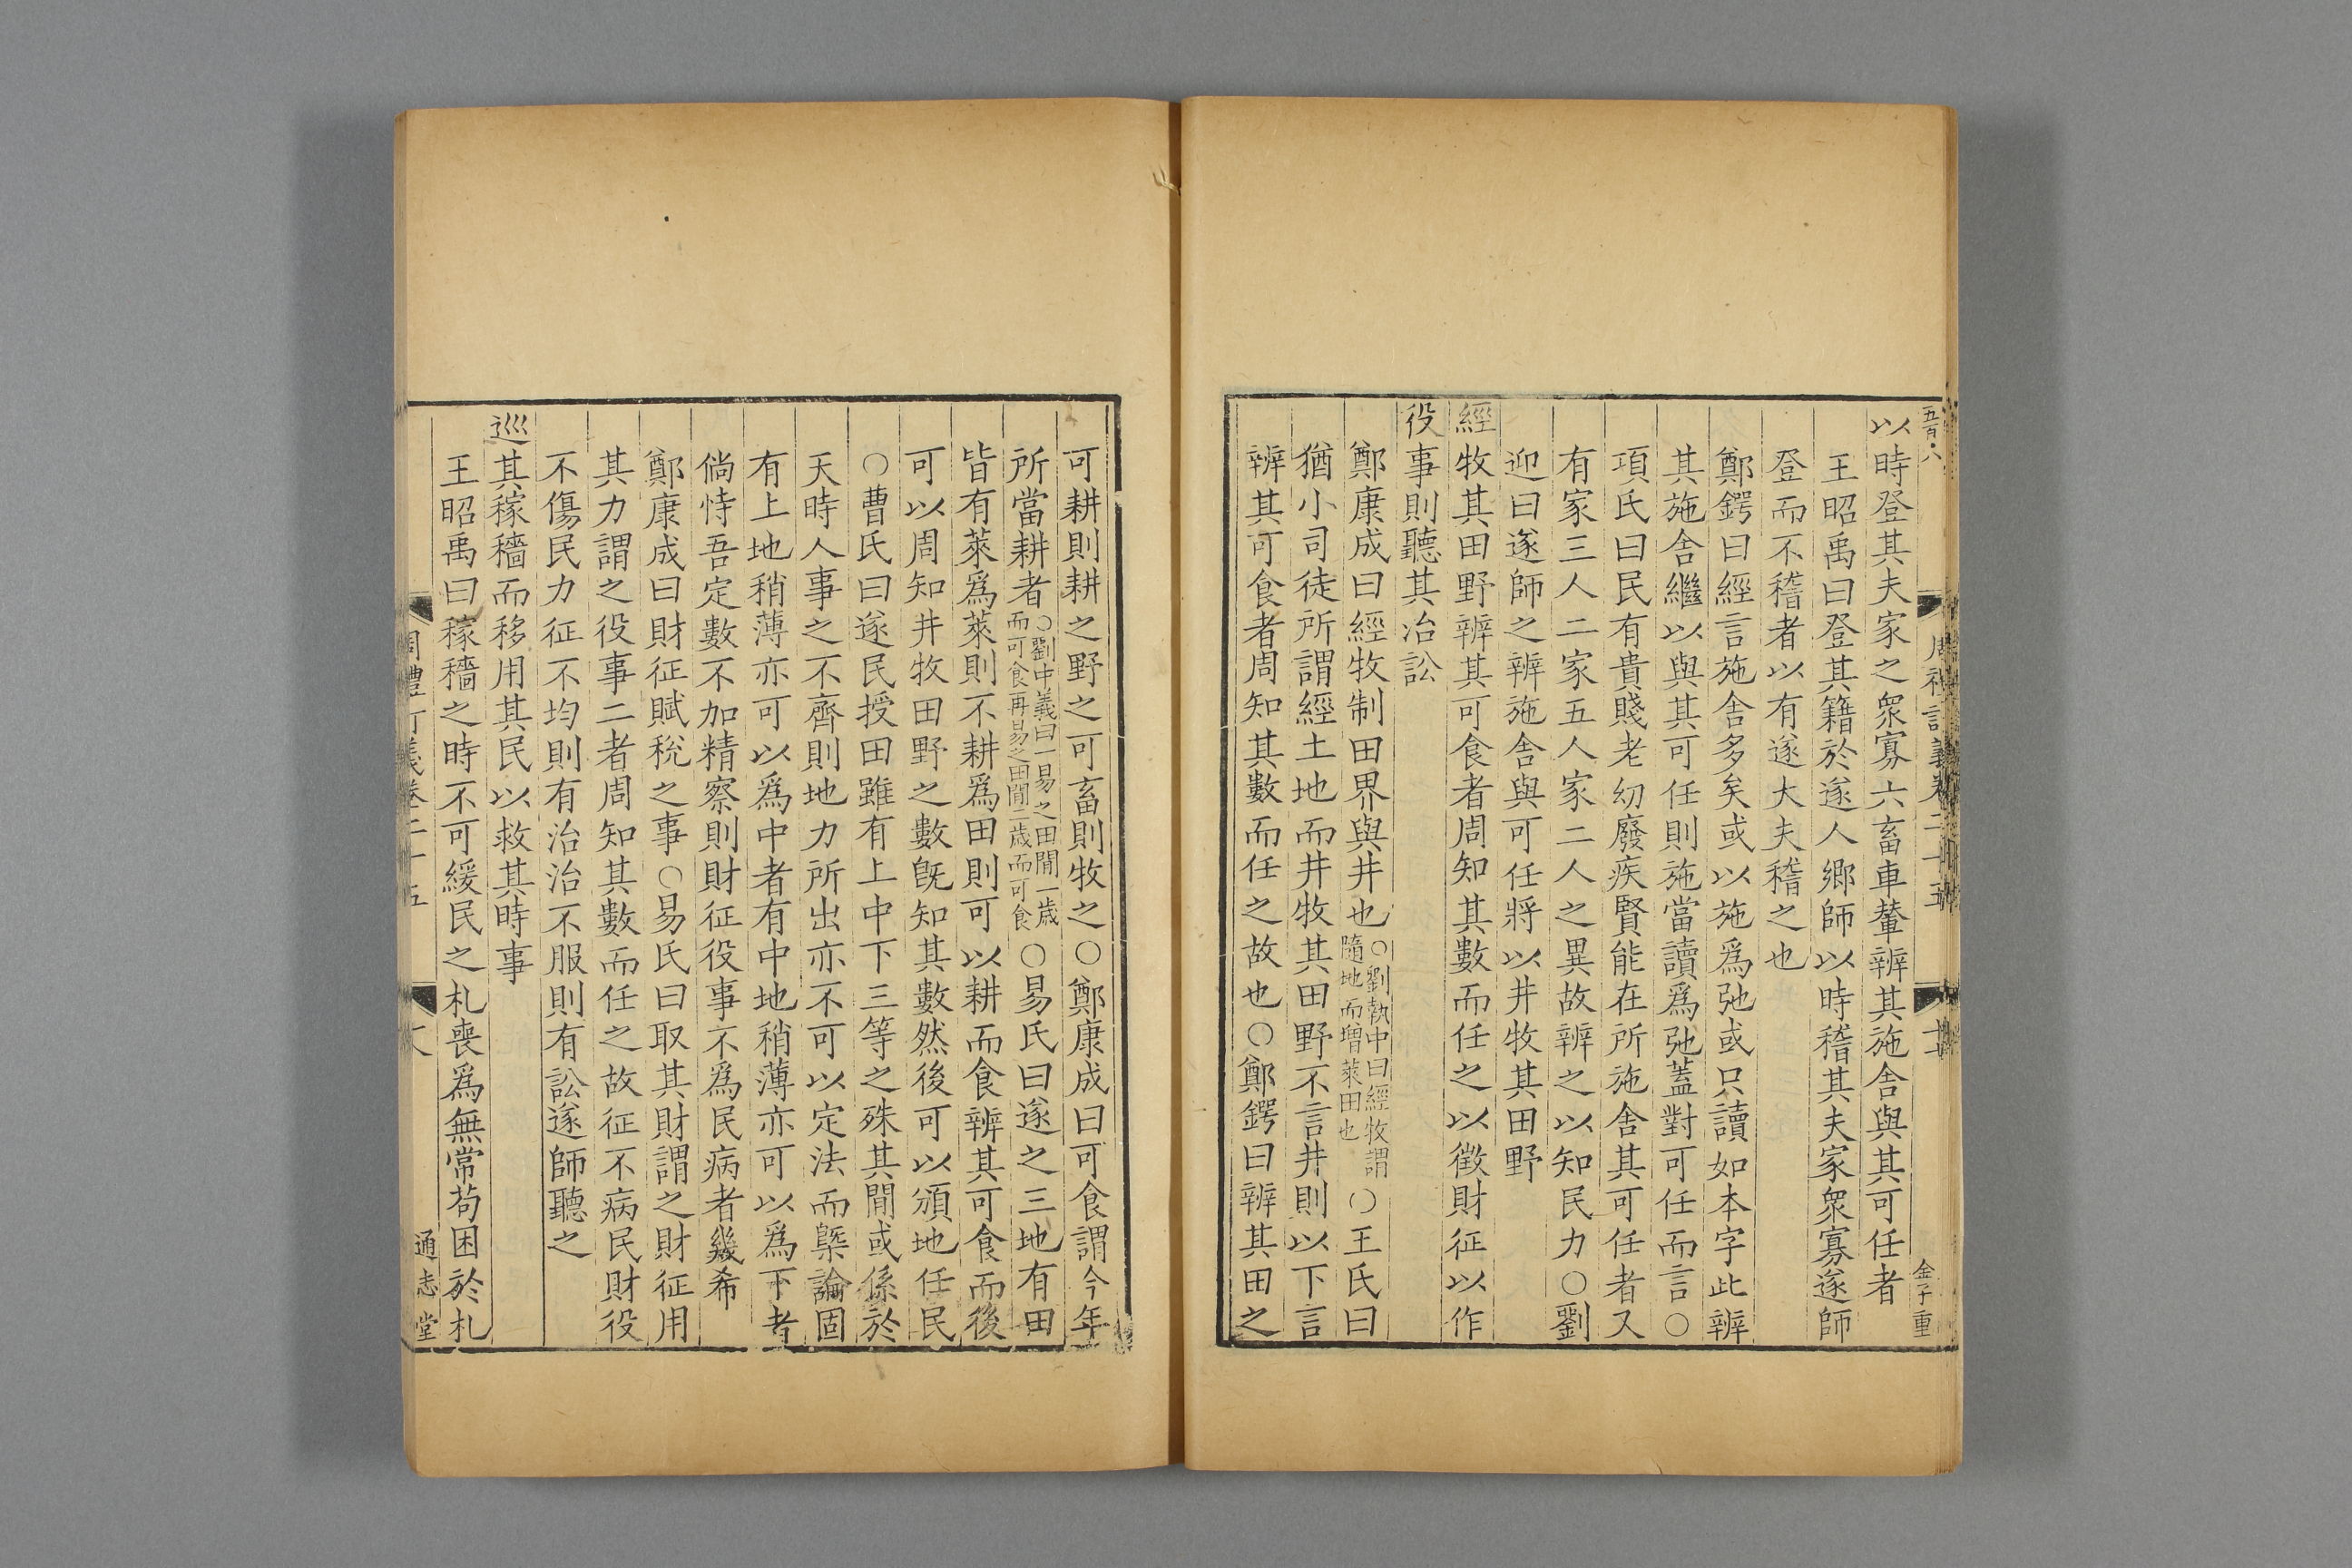 以時登其夫家之眾寡六畜車輦辨其施舍與其可任者
王昭禹曰登其籍於遂人鄉師以時稽其夫家眾寡遂師
登而不稽者以有遂大夫稽之也
鄭鍔曰經言施舍多矣或以施爲弛或只讀如本字此辨
其施舍繼以與其可任則施當讀爲弛蓋對可任而言○
項氏曰民有貴賤老幼廢疾賢能在所施舍其可任者又
有家三人二家五人家二人之異故辨之以知民力○劉
迎曰遂師之辨施舍與可任將以井牧其田野
經牧其田野辨其可食者周知其數而任之以徵財征以作
役事則聽其治訟
鄭康成曰經牧制田界與井也○劉執中曰經牧謂隨地而增萊田也○王氏曰
猶小司徒所謂經土地而井牧其田野不言井則以下言
辨其可食者周知其數而任之故也○鄭鍔曰辨其田之
金子重
可耕則耕之野之可畜則牧之○鄭康成曰可食謂今年
所當耕者○劉中義曰一易之田間一歲而可食再易之田間二歲而可食○易氏曰遂之三地有田
皆有萊爲萊則不耕爲田則可以耕而食辨其可食而後
可以周知井牧田野之數旣知其數然後可以頒地任民
○曹氏曰遂民授田雖有上中下三等之殊其間或係於
天時人事之不齊則地力所出亦不可以定法而槩論固
有上地稍薄亦可以爲中者有中地稍薄亦可以爲下者
倘恃吾定數不加精察則財征役事不爲民病者幾希
鄭康成曰財征賦稅之事○易氏曰取其財謂之財征用
其力謂之役事二者周知其數而任之故征不病民財役
不傷民力征不均則有治治不服則有訟遂師聽之
巡其稼穡而移用其民以救其時事
王昭禹曰稼穡之時不可緩民之札喪爲無常苟困於札
通志堂